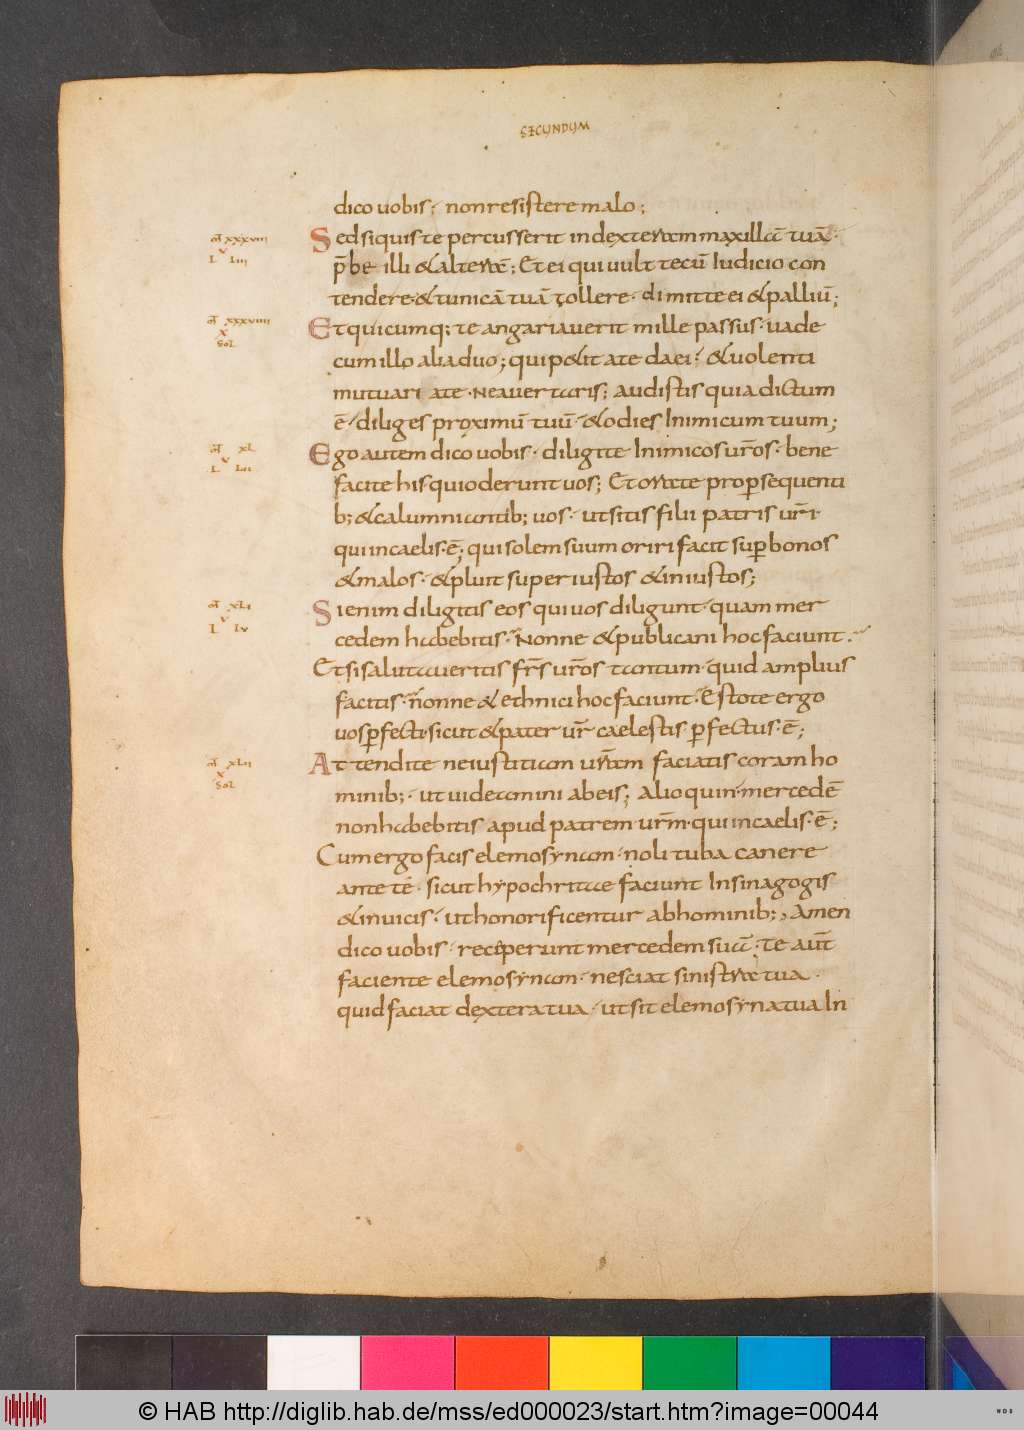 SECUNDUM
dico uobis · non resistere malo ;
mt xxxviii
v
L liii
Sed siquis te percusserit in dexteram maxillā tuā ·
p̄be illi & alterā ; Et ei qui uult tecū Iudicio con
tendere · & tunicā tuā tollere · dimitte ei & palliū ;
mt xxxviiii
x
Sol
Et quicumq; te angariauerit mille passus · uade
cum illo alia duo ; qui p&it a te da ei · & uolenti
mutuari a te · Ne auertaris ; audistis quia dictum
ē · diliges proximū tuū · & odies Inimicum tuum ;
mt xl
v
L liii
Ego autem dico uobis · diligite Inimicos ur̄os · bene
facite his qui oderunt uos ; Et orate pro ꝑsequenti
b; & calumniantib; uos · ut sitis filii patris ur̄i ·
qui in caelis · ē ; qui solem suum oriri facit suꝑ bonos
& malos · & pluit super iustos & iniustos ;
mt xli
v
L lv
Si enim diligitis eos qui uos diligunt · quam mer
cedem habebitis · Nonne & publicani hoc faciunt ·
Et si salutaueritis fr̄s ur̄os tantum · quid amplius
facitis · nonne & ethnici hoc faciunt · Estote ergo
uos ꝑfecti · sicut & pater ur̄ caelestis · ꝑfectus · ē ;
mt xlii
x
Sol
Attendite ne iustitiam ur̄am faciatis coram ho
minib; · ut uideamini ab eis ; Alioquin · mercedē
non habebitis apud patrem · ur̄m · qui in caelis · ē ;
Cum ergo facis elemosynam · noli tuba canere
ante te · sicut hypochritae faciunt In sinagogis
& in uicis · ut honorificentur ab hominib; ; Amen
dico uobis · receperunt mercedem suā · Te aut̄
faciente elemosynam · nesciat sinistra tua ·
quid faciat dextera tua · ut sit elemosyna tua In
© HAB http://diglib.hab.de/mss/ed000023/start.htm?image=00044